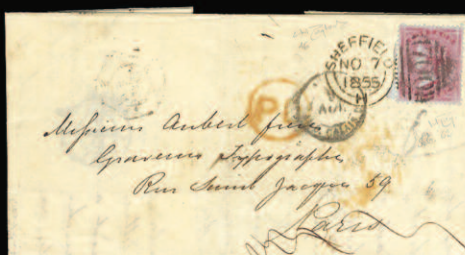 SHEFFIELD
NO 7
1855
H
PD
Messieurs Aubert frères
Graveurs Typographes
Rue Saint Jacques 59
Paris